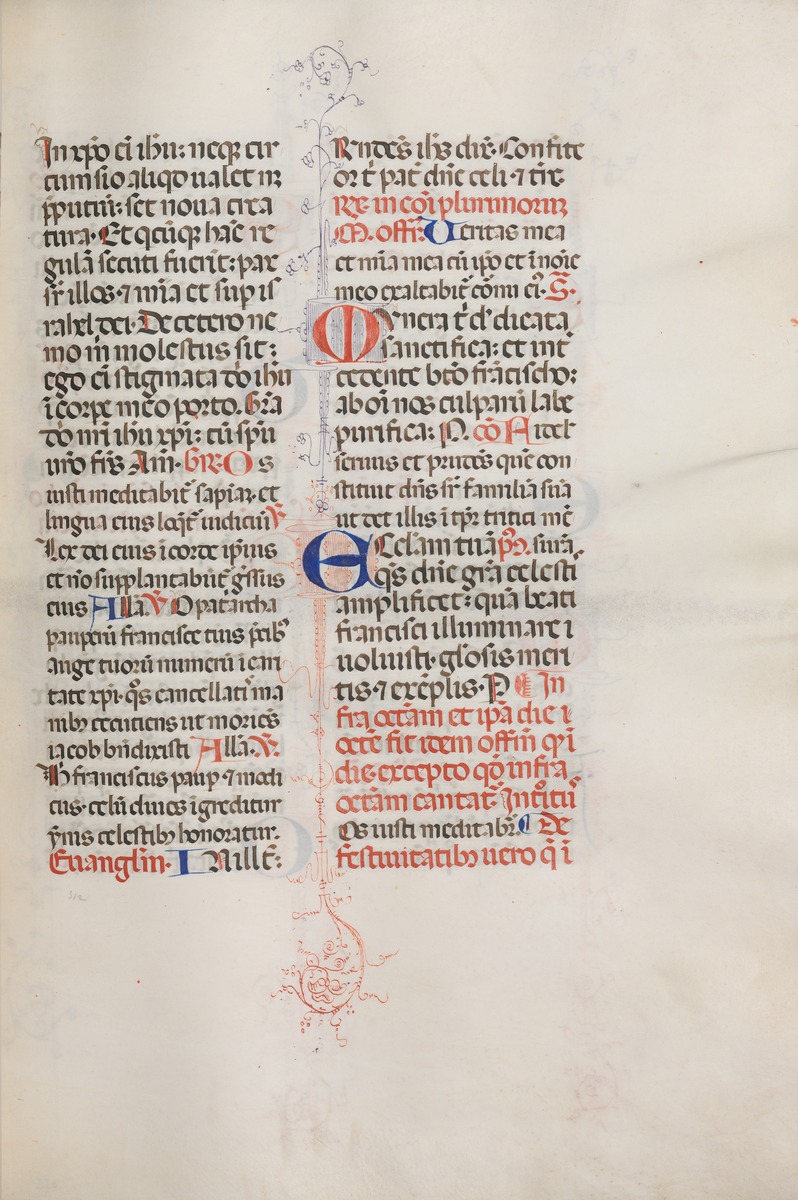 In xp̄o ei ih̄u: neqꝫ cir
cumsio aliqd ualet nꝫ
p̄putiū: set noua crea
tura. Et qcūqꝫ hāc re
gulā secuti fuerīt: pax
sr̄ illos ⁊ mīa et sup is
rahel dei. De cetero ne
mo m̄ molestus sit:
ego eī stigmata dn̄ ihū
ī corpe meo porto. Gr̄a
dn̄ nr̄i ihū xpī: cū spū
ur̄o frs̄ Am̄. GR. Os
iusti meditabit̄ sapiaꝫ et
lingua eius loqt̄ iudiciū V
Lex dei eius ī corde ipsius
et nō supplantabūt̄ gssus
eius Alla. V O patarcha
pauperū francisce tuis pcibꝫ
auge tuorū numerū ī cari
tate xpī. qs cancellatis ma
nibꝫ cecutiens ut moriēs
iacob bn̄dixisti Alla. V.
H franciscus paup ⁊ modi
cus. celū diues īgreditur
ymis celestibꝫ honoratur.
Euangliū. In ill t̄:
Rndēs ihs dix̄. Confite
or t̄ pat̄ dn̄e celi ⁊ tr̄e.
Re in cōi plurimoruꝫ
M. offr̄. Ueritas mea
et mīa mea cū ip̄o et ī noīe
meo exaltabit̄ cornu eī. S.
Munera t̄ dn̄e dicata
sanctifica: et int̄
cedente bt̄o frācischo:
ab oī nos culparū labe
purifica: P. cō Fidel̄
seruus et prudēs quē con
stituit dn̄s sr̄ familiā suā
ut det illis ī tp̄r tritici mē
Ecclām tuā pō. surā.
qs dn̄e gr̄a celesti
amplificet: quā beati
francisci illuminare
uoluisti. glosis meri
tis ⁊ exēplis. P In
fra octām et ip̄a die ī
octē fit item offm̄ qī
die excepto qd infra
octām cantat̄ Introitū
Os iusti meditabr̄. De
festiuitatibꝫ uero q̄ ī